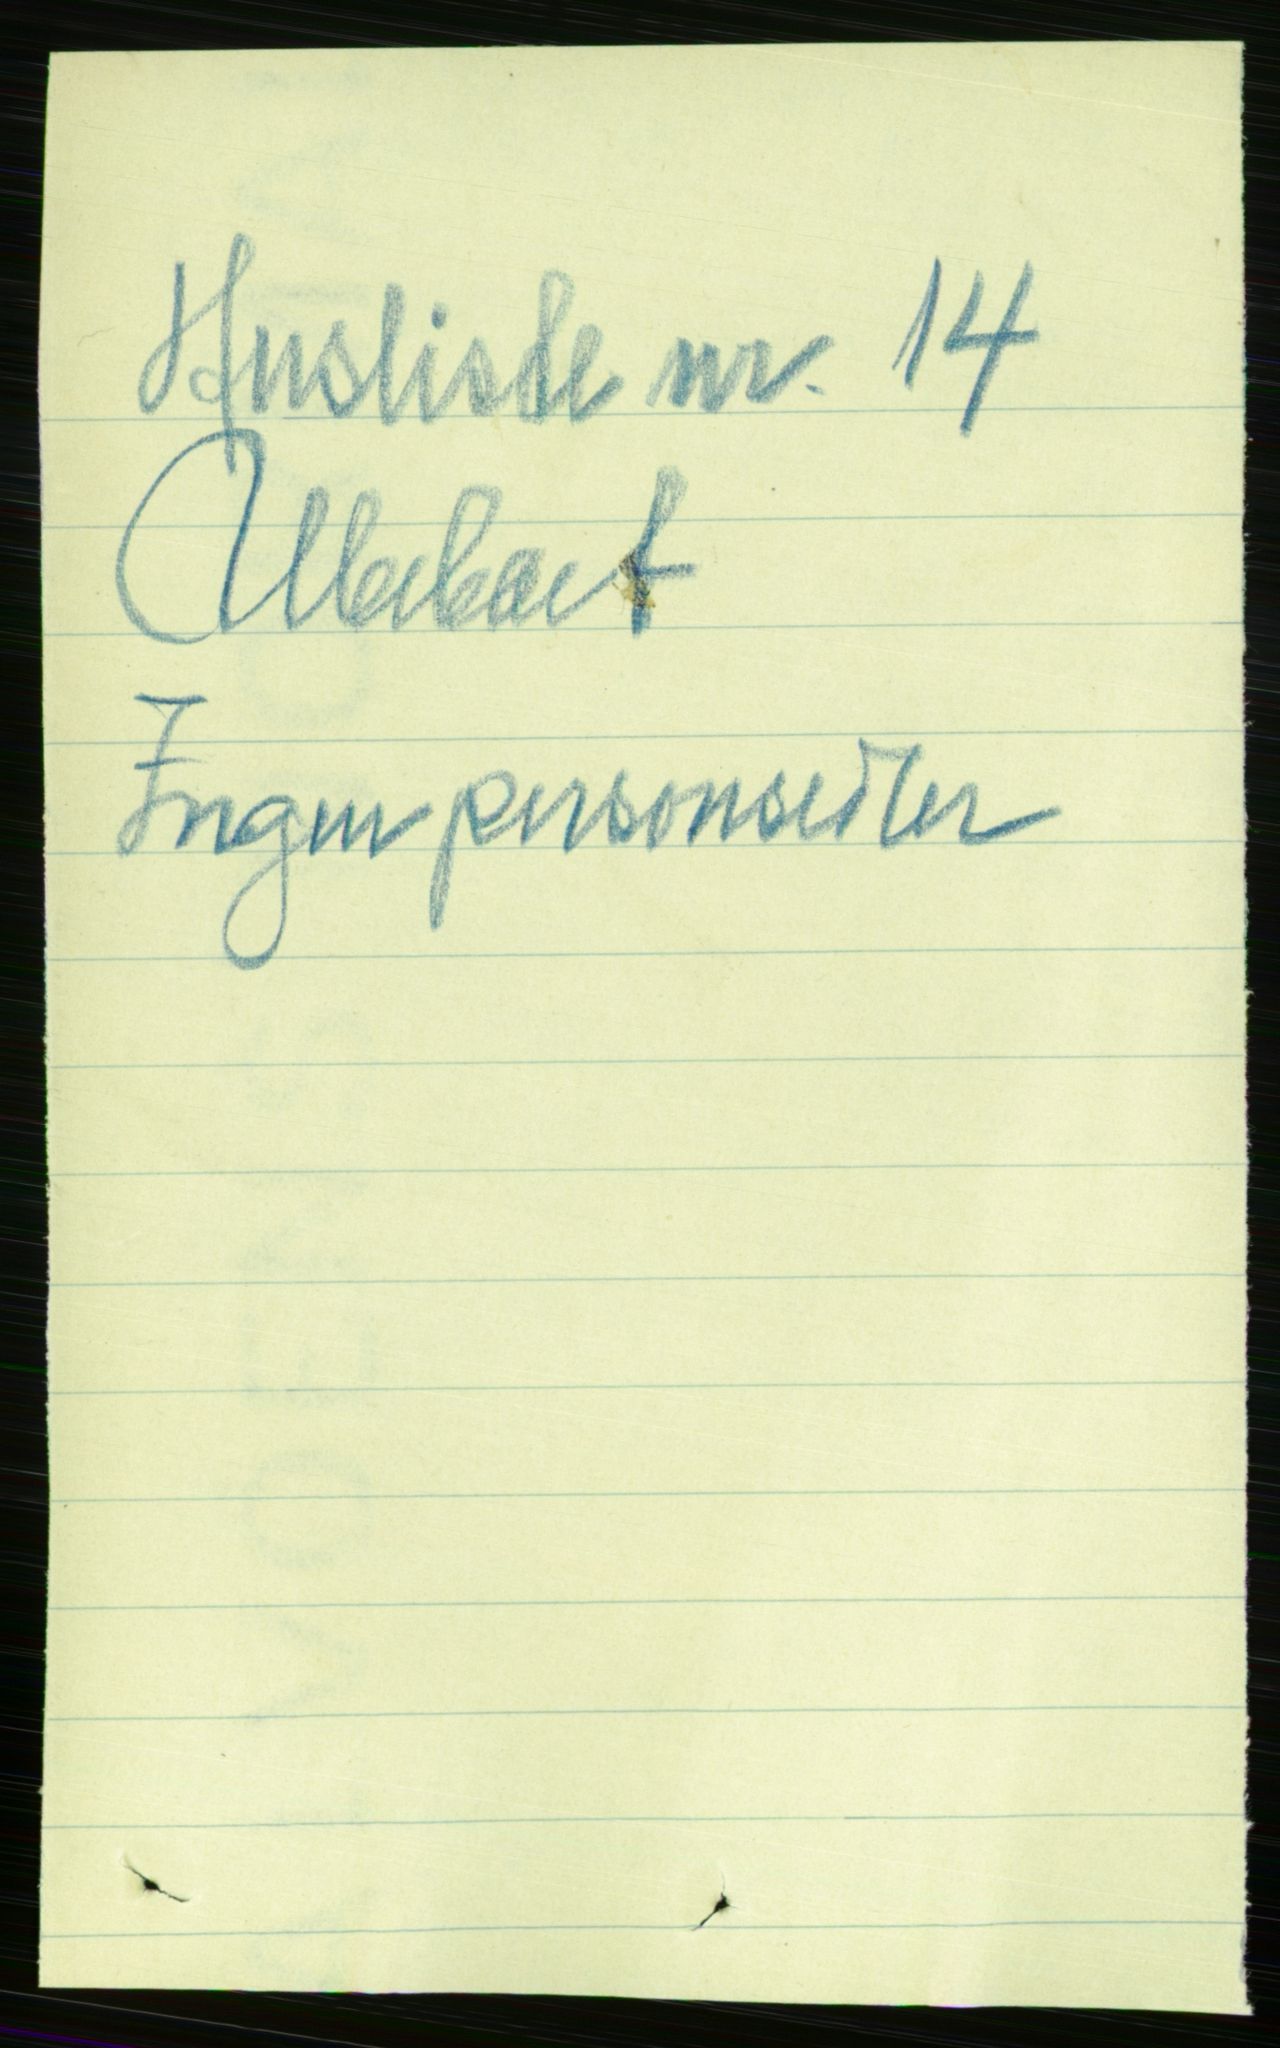 Husliste nr. 14
Ubebaet
Ingen personsedler